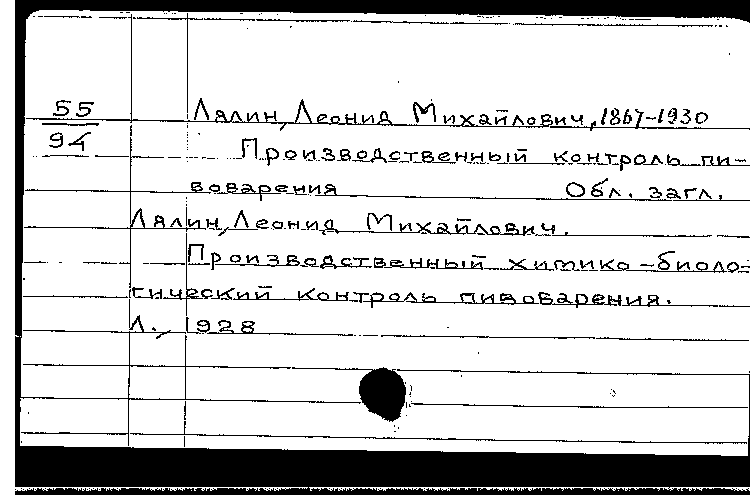 55
94
Лялин, Леонид Михайлович, 1867-1930
Производственный контроль пи-
воварения Обл. загл.
Лялин, Леонид Михайлович.
Производственный химико-биоло-
гический контроль пивоварения.
Л., 1928